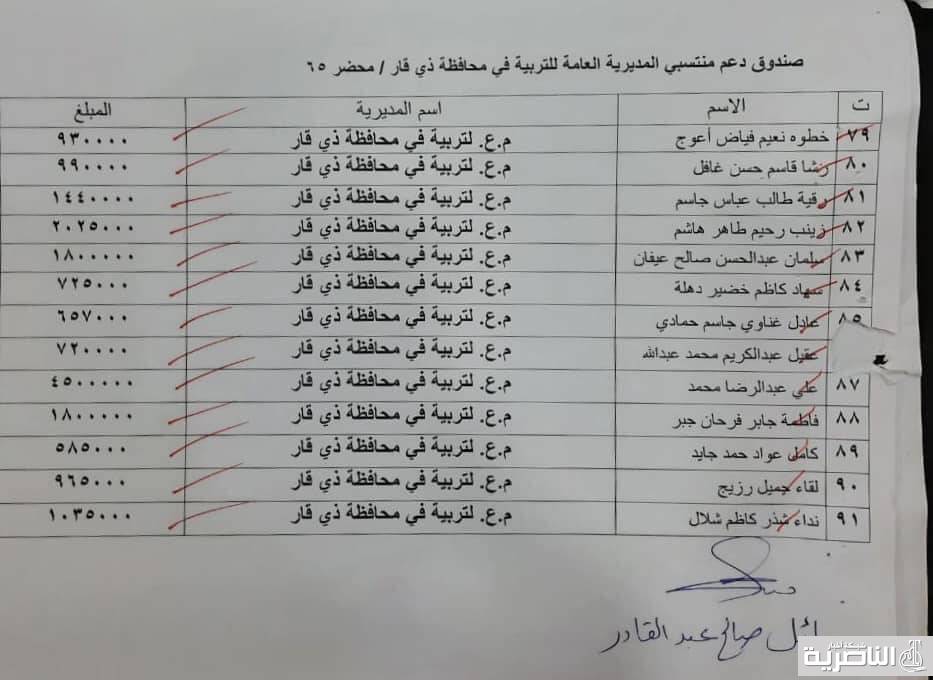 صندوق دعم منتسبي المديرية العامة للتربية في محافظة ذي قار / محضر ٦٥
ت الاسم اسم المديرية المبلغ
٧٩ خطوه نعيم فياض أعوج م.ع. لتربية في محافظة ذي قار ٩٣٠٠٠٠
٨٠ رشا قاسم حسن غافل م.ع. لتربية في محافظة ذي قار ٩٩٠٠٠٠
٨١ رقية طالب عباس جاسم م.ع. لتربية في محافظة ذي قار ١٤٤٠٠٠٠
٨٢ زينب رحيم طاهر هاشم م.ع. لتربية في محافظة ذي قار ٢٠٢٥٠٠٠
٨٣ سلمان عبدالحسن صالح عيفان م.ع. لتربية في محافظة ذي قار ١٨٠٠٠٠٠
٨٤ سهاد كاظم خضير دهلة م.ع. لتربية في محافظة ذي قار ٧٢٥٠٠٠
٨٥ عادل غناوي جاسم حمادي م.ع. لتربية في محافظة ذي قار ٦٥٧٠٠٠
عقيل عبدالكريم محمد عبدالله م.ع. لتربية في محافظة ذي قار ٧٢٠٠٠٠
٨٧ علي عبدالرضا محمد م.ع. لتربية في محافظة ذي قار ٤٥٠٠٠٠٠
٨٨ فاطمة جابر فرحان جبر م.ع. لتربية في محافظة ذي قار ١٨٠٠٠٠٠
٨٩ كامل عواد حمد جايد م.ع. لتربية في محافظة ذي قار ٥٨٥٠٠٠
٩٠ لقاء جميل رزيج م.ع. لتربية في محافظة ذي قار ٩٦٥٠٠٠
٩١ نداء شذر كاظم شلال م.ع. لتربية في محافظة ذي قار ١٠٣٥٠٠٠
صالح عبد القادر
شبكة أخبار
الناصرية